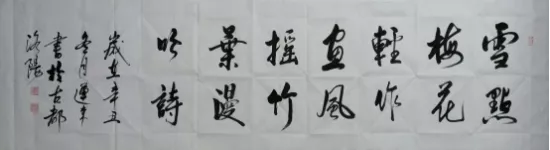 雪點
梅花
輕作
畫風
摇竹
葉漫
吟詩
歲在辛丑
冬月運来
書於古都
洛陽